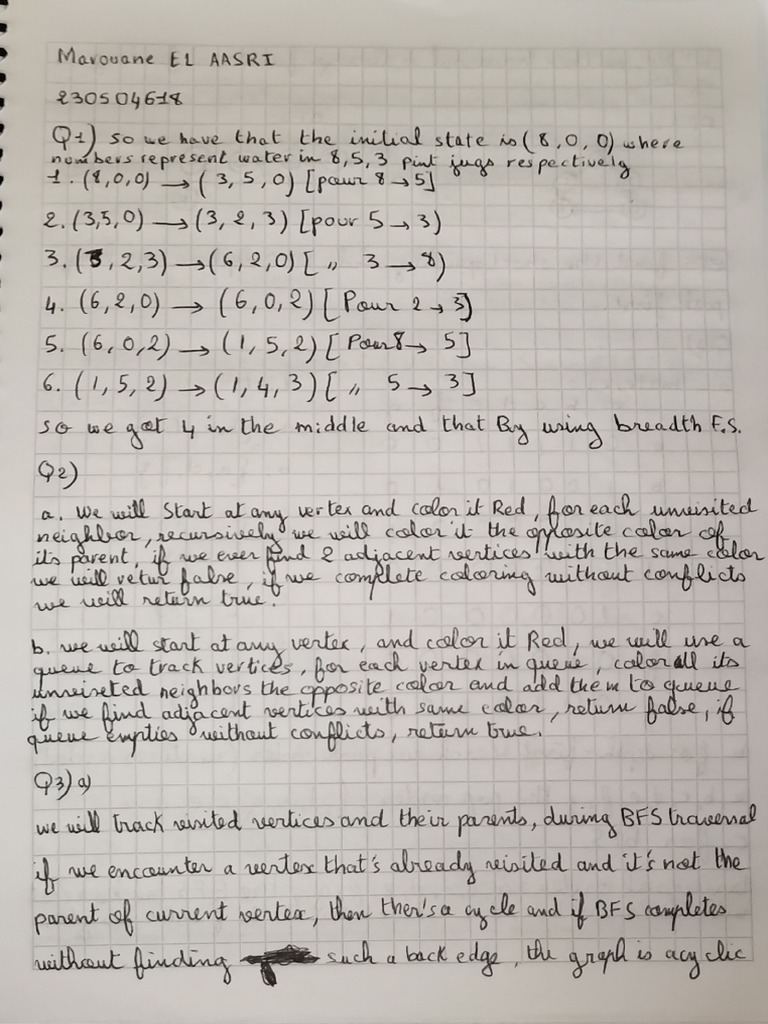 Marouane EL AASRI
230504618
Q1) so we have that the initial state is (8, 0, 0) where
numbers represent water in 8, 5, 3 pint jugs respectively
1. (8,0,0) → (3, 5, 0) [pour 8 → 5]
2. (3,5,0) → (3, 2, 3) [pour 5 → 3)
3. (3, 2, 3) → (6, 2, 0) [ 〃 3 → 8)
4. (6, 2, 0) → (6, 0, 2) [Pour 2 → 3]
5. (6, 0, 2) → (1, 5, 2) [Pour 8 → 5]
6. (1, 5, 2) → (1, 4, 3) [ 〃 5 → 3]
so we got 4 in the middle and that By using breadth F.S.
Q2)
a. We will Start at any vertex and color it Red, for each unvisited
neighbor, recursively we will color it the opposite color of
its parent, if we ever find 2 adjacent vertices with the same color
we will retur false, if we complete coloring without conflicts
we will return true.
b. we will start at any vertex, and color it Red, we will use a
queue to track vertices, for each vertex in queue, color all its
unvisited neighbors the opposite color and add them to queue
if we find adjacent vertices with same color, return false, if
queue empties without conflicts, return true.
Q3) a)
we will track visited vertices and their parents, during BFS traversal
if we encounter a vertex that's already visited and it's not the
parent of current vertex, then ther's a cycle and if BFS completes
without finding such a back edge, the graph is acyclic